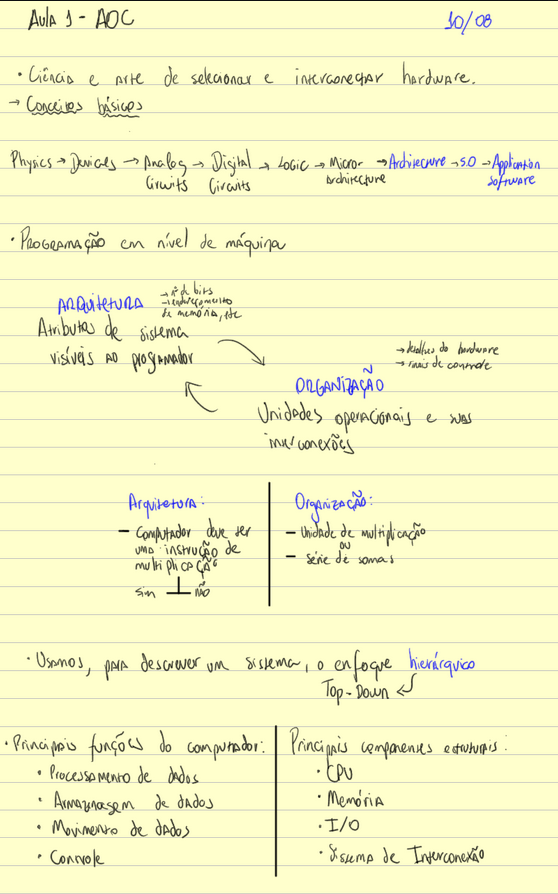 Aula 1 - AOC 10/08
• Ciência e arte de selecionar e interconectar hardware.
→ Conceitos básicos
Physics → Devices → Analog → Digital → Logic → Micro- → Architecture → S.O → Application
Circuits Circuits architecture software
• Programação em nível de máquina
ARQUITETURA
→ nº de bits
→ endereçamento
de memória, etc
Atributos de sistema
visíveis ao programador
→ detalhes do hardware
→ sinais de controle
ORGANIZAÇÃO
Unidades operacionais e suas
interconexões
Arquitetura:
- Computador deve ser
uma instrução de
multiplicação
sim não
Organização:
- Unidade de multiplicação
ou
- Série de somas
• Usamos, para descrever um sistema, o enfoque hierárquico
Top-Down
• Principais funções do computador:
• Processamento de dados
• Armaznagem de dados
• Movimento de dados
• Controle
Principais componenses estruturais:
• CPU
• Memória
• I/O
• Sistema de Interconexão